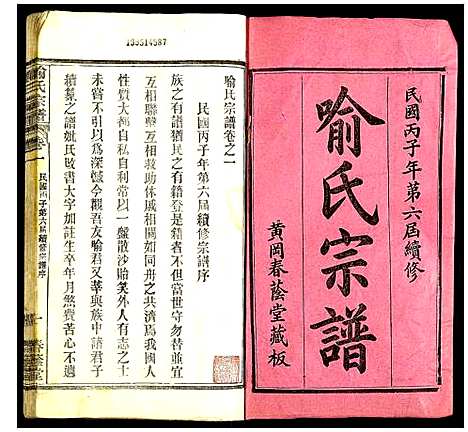 民國丙子年第六屆續修
喻氏宗譜
黃岡春蔭堂藏板
133514587
喻氏宗譜卷之一
民國丙子年第六屆續修宗譜序
族之有譜猶民之有籍登是籍者不但當世守勿替並宜
互相聯擊互相救助休戚相關如同舟之共濟焉我國人
性質大率自私自利常以一盤散沙貽笑外人有志之士
未嘗不引以為深憾今觀吾友喻君又莘與族中諸君子
續纂之譜姚氏敗書大字加註生卒年月煞費苦心不遺
喻氏宗譜
卷一
民國丙子第六屆續修宗譜序